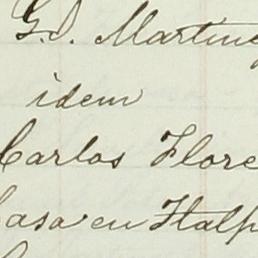 G. I. Martine
idem
Carlos Flore
Casa en Ttalp